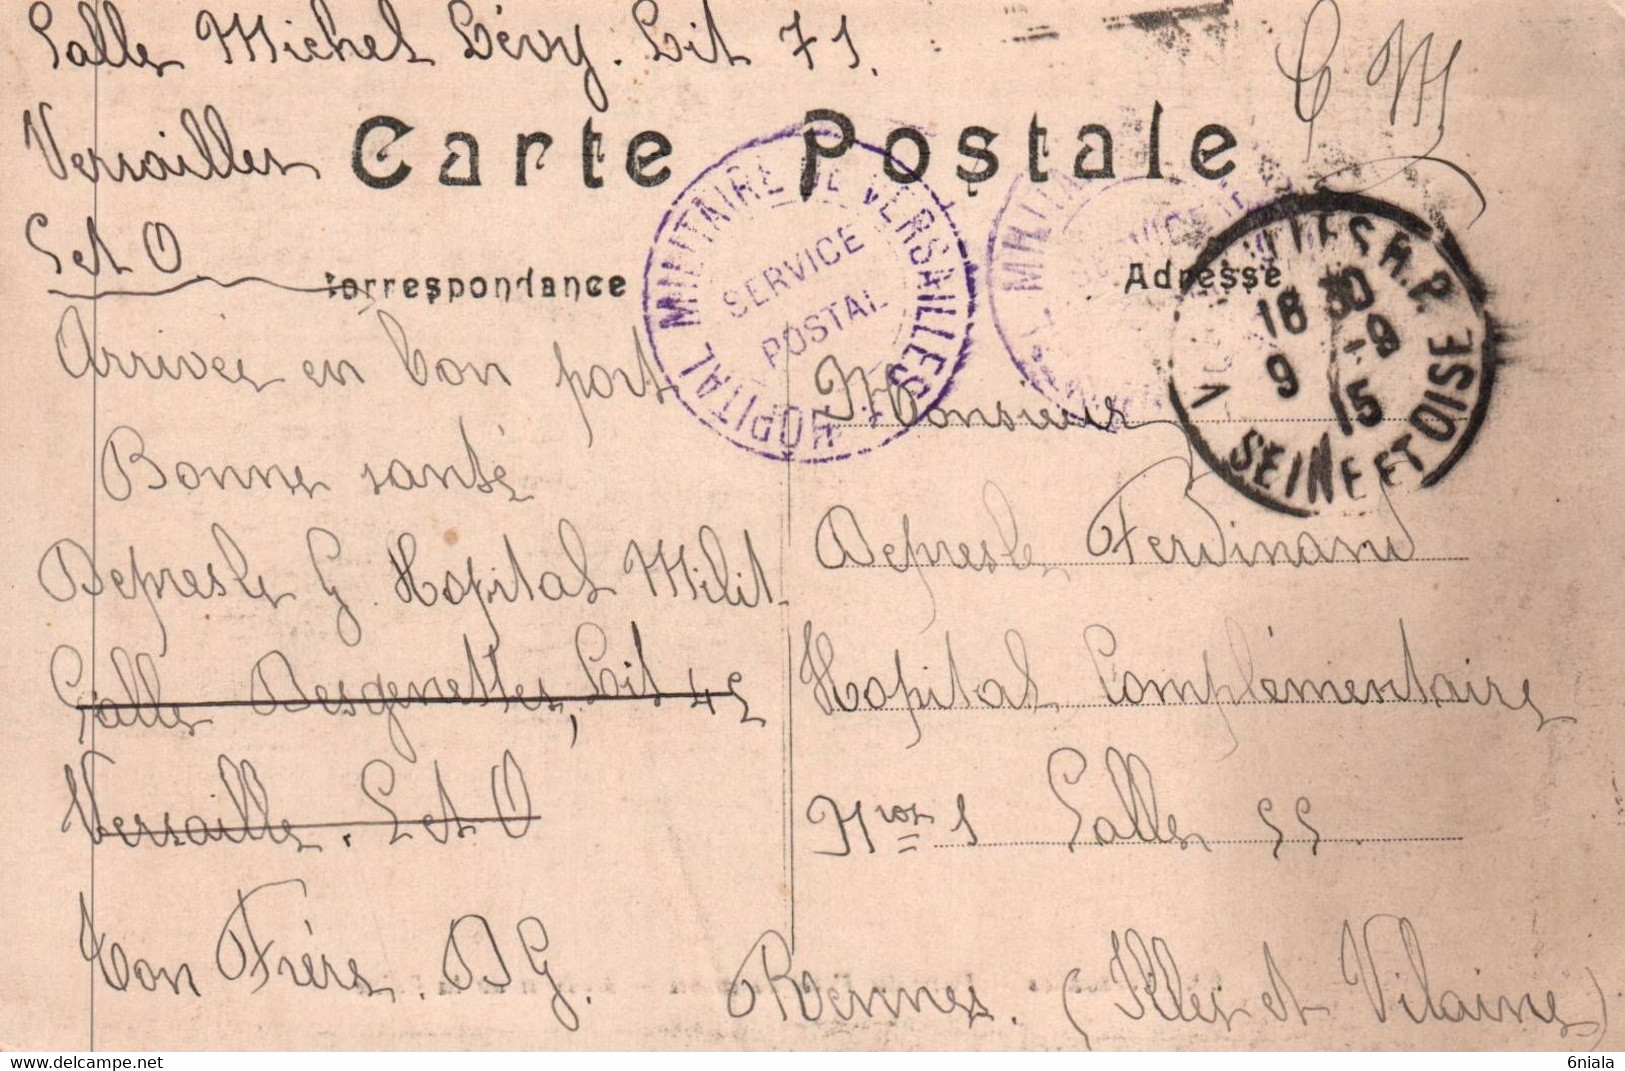 Salle Michel Lévy. Lit 71.
Versailles
S et O
C M
Carte Postale
Correspondance
Adresse
HOPITAL MILITAIRE DE VERSAILLES
SERVICE
POSTAL
VERSAILLES R.P.
18 30
9 -9
15
SEINE ET OISE
Arrivée en bon port
Bonne santé
Depresle G Hopital Milit
Salle Desgenettes, Lit 45
Versaille. S et O
Ton Frère. DG.
Monsieur
Depresle Ferdinand
Hopital Complémentaire
Nro 1 Salle 55
Rennes. (Ille et Vilaine)
6niala
delcampe.net